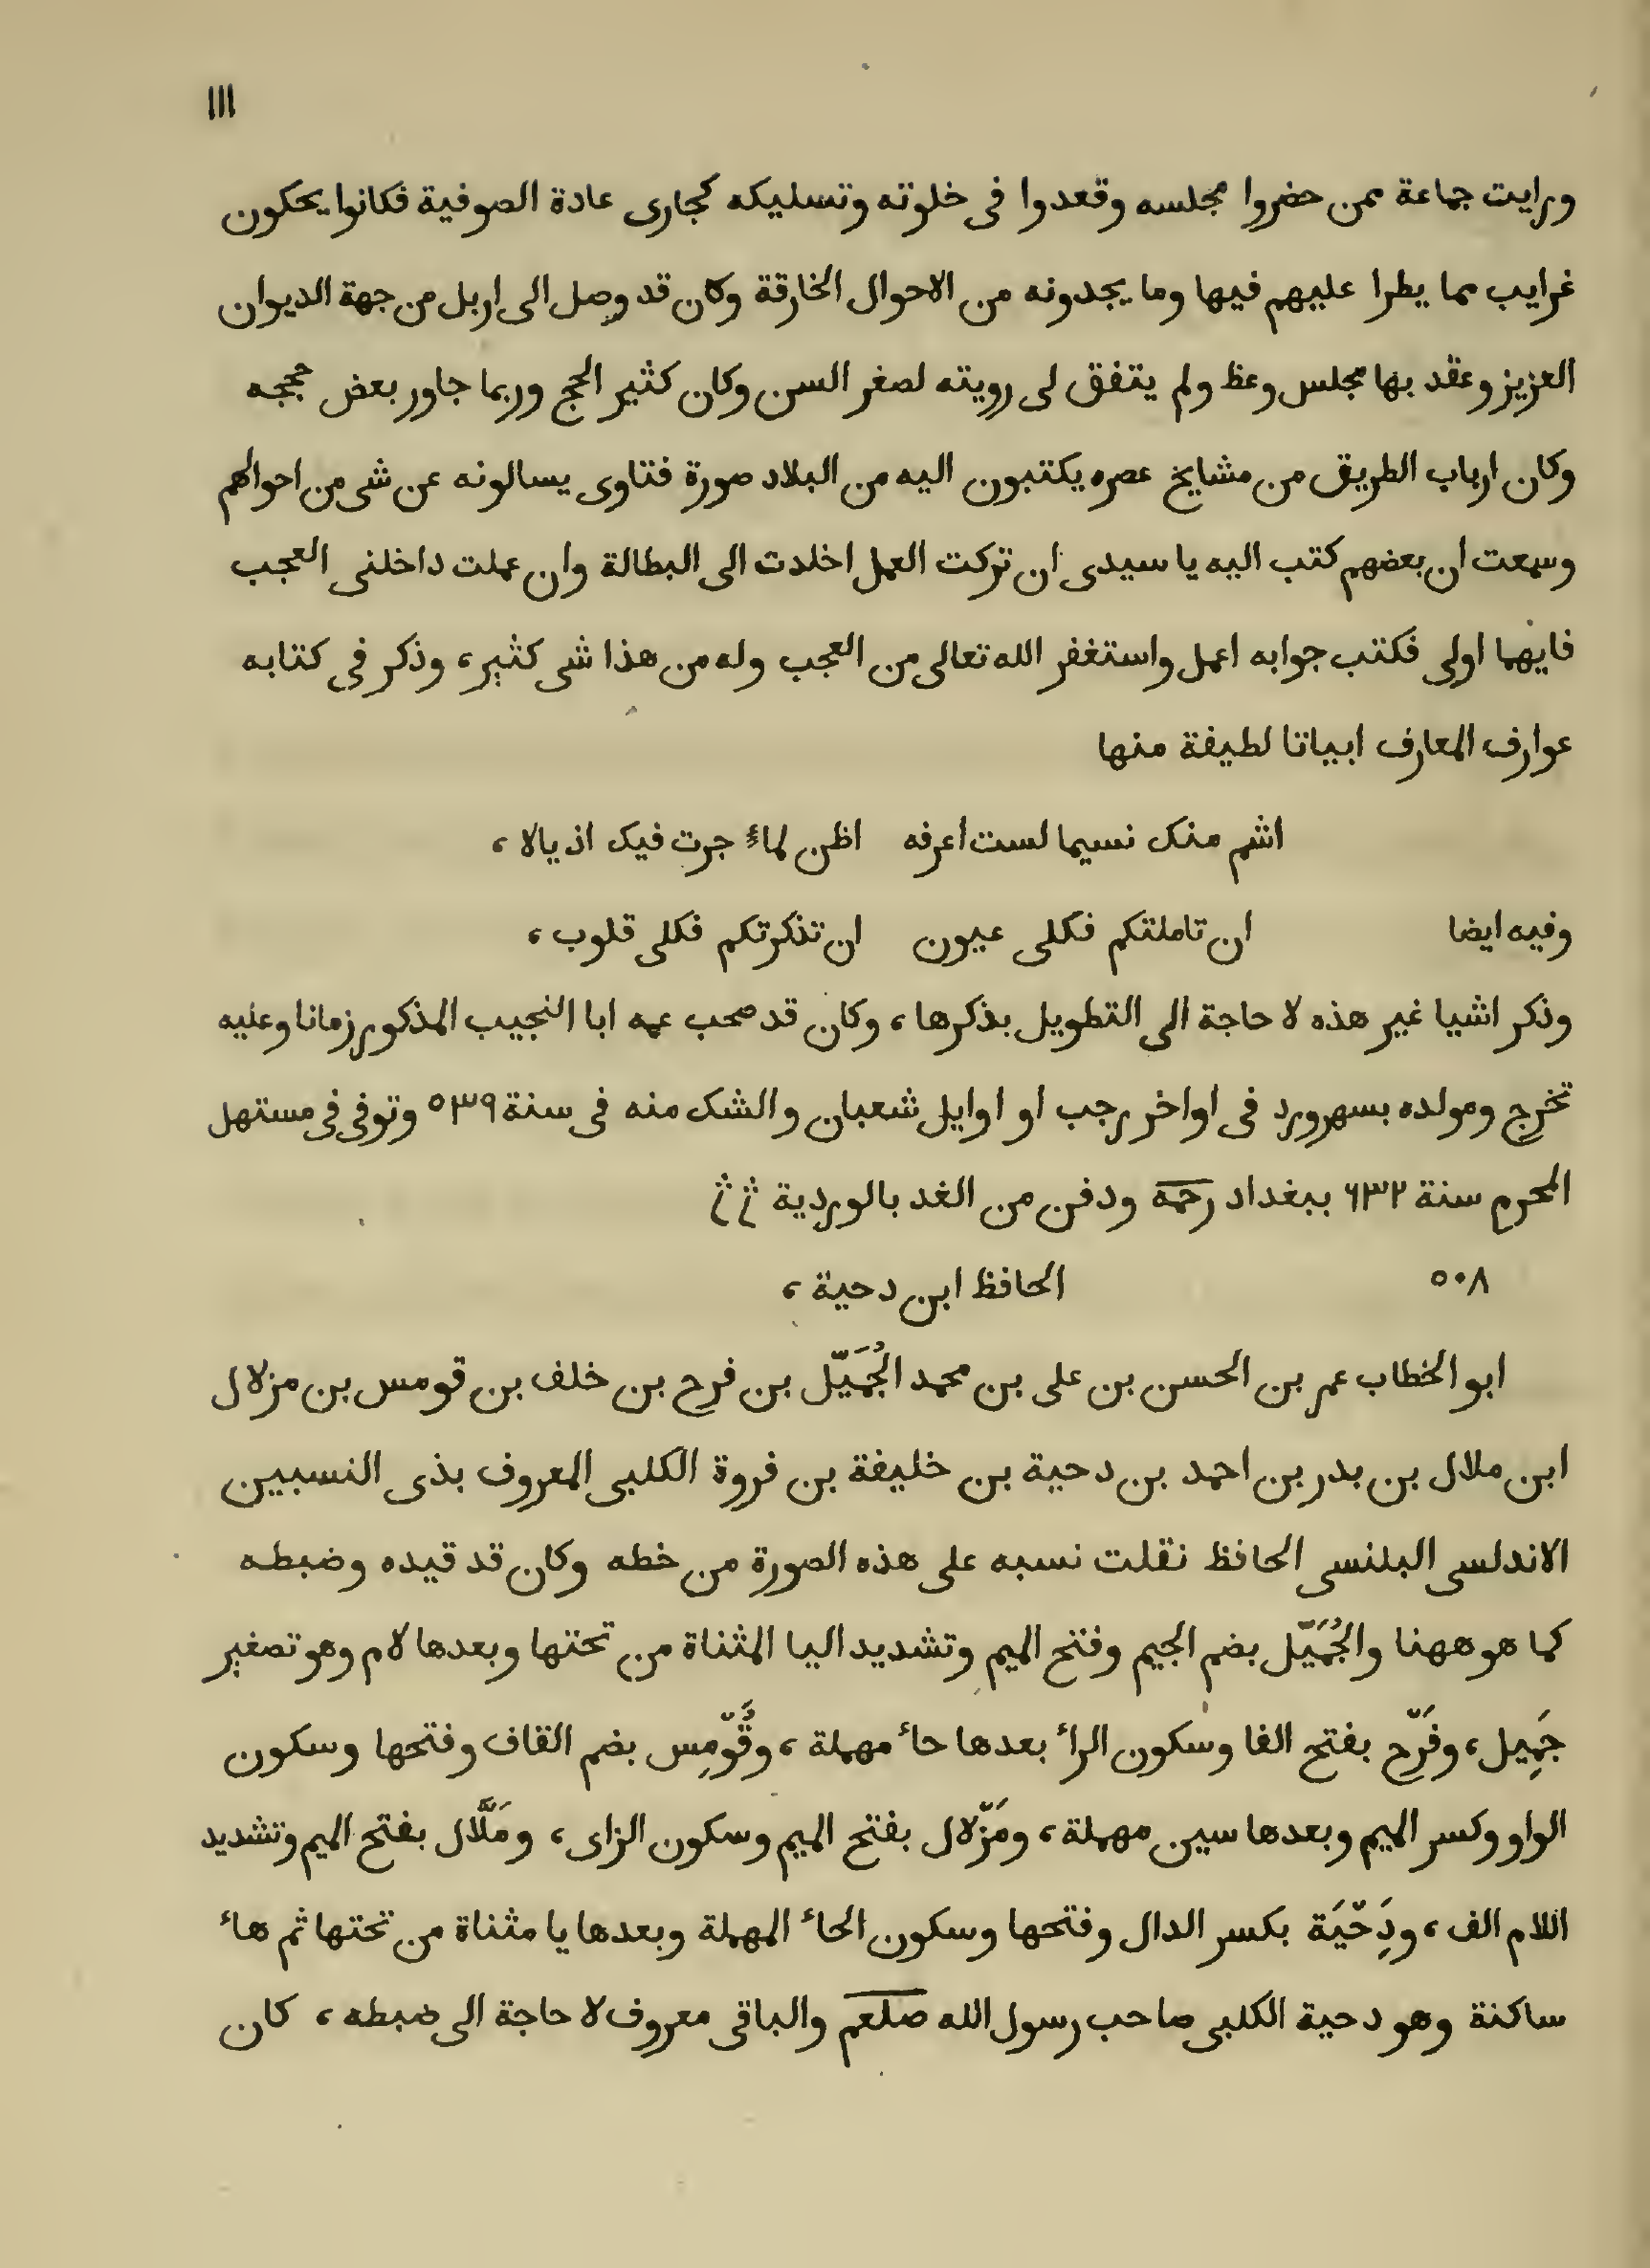 ١١١
ورايت جماعة ممن حضروا مجلسه وقعدوا فى خلوته وتسليكه كجارى عادة الصوفية فكانوا يحكون
غرايب مما يطرا عليهم فيها وما يجدونه من الاحوال الخارقة وكان قد وصل الى اربل من جهة الديوان
العزيز وعقد بها مجلس وعظ ولم يتفق لى رويته لصغر السن وكان كثير الحج وربما جاور بعض حججه
وكان ارباب الطريق من مشايخ عصره يكتبون اليه من البلاد صورة فتاوى يسالونه عن شى من احوالهم
وسمعت ان بعضهم كتب اليه يا سيدى ان تركت العمل اخلدت الى البطالة وان عملت داخلنى العجب
فايهما اولى فكتب جوابه اعمل واستغفر الله تعالى من العجب وله من هذا شى كثير، وذكر فى كتابه
عوارف المعارف ابياتا لطيفة منها
اشم منك نسيما لست اعرفه اظن لماءَ جرت فيك اذيالا ،
وفيه ايضا ان تاملتكم فكلى عيون ان تذكرتكم فكلى قلوب ،
وذكر اشيا غير هذه لا حاجة الى التطويل بذكرها ، وكان قد صحب عمه ابا النجيب المذكور زمانا وعليه
تخرج ومولده بسهرورد فى اواخر رجب او اوايل شعبان والشك منه فى سنة ٥٣٩ وتوفى فى مستهل
المحرم سنة ٦٣٢ ببغداد رحمه ودفن من الغد بالوردية
٥٠٨ الحافظ ابن دحية ،
ابو الخطاب عمر بن الحسن بن على بن محمد الجُمَيّل بن فرح بن خلف بن قومس بن مزلال
ابن ملال بن بدر بن احمد بن دحية بن خليفة بن فروة الكلبى المعروف بذى النسبين
الاندلسى البلنسى الحافظ نقلت نسبه على هذه الصورة من خطه وكان قد قيده وضبطه
كما هو ههنا والجُمَيّل بضم الجيم وفتح الميم وتشديد اليا المثناة من تحتها وبعدها لام وهو تصغير
جَمِيل ، وفَرْح بفتح الفا وسكون الراء بعدها حاء مهملة ، وقَُوْمِس بضم القاف وفتحها وسكون
الواو وكسر الميم وبعدها سين مهملة ، ومَزْلال بفتح الميم وسكون الزاى ، ومَلَّال بفتح الميم وتشديد
اللام الف ، ودَِحْيَة بكسر الدال وفتحها وسكون الحاء المهملة وبعدها يا مثناة من تحتها ثم هاء
ساكنة وهو دحية الكلبى صاحب رسول الله صلعم والباقى معروف لا حاجة الى ضبطه ، كان